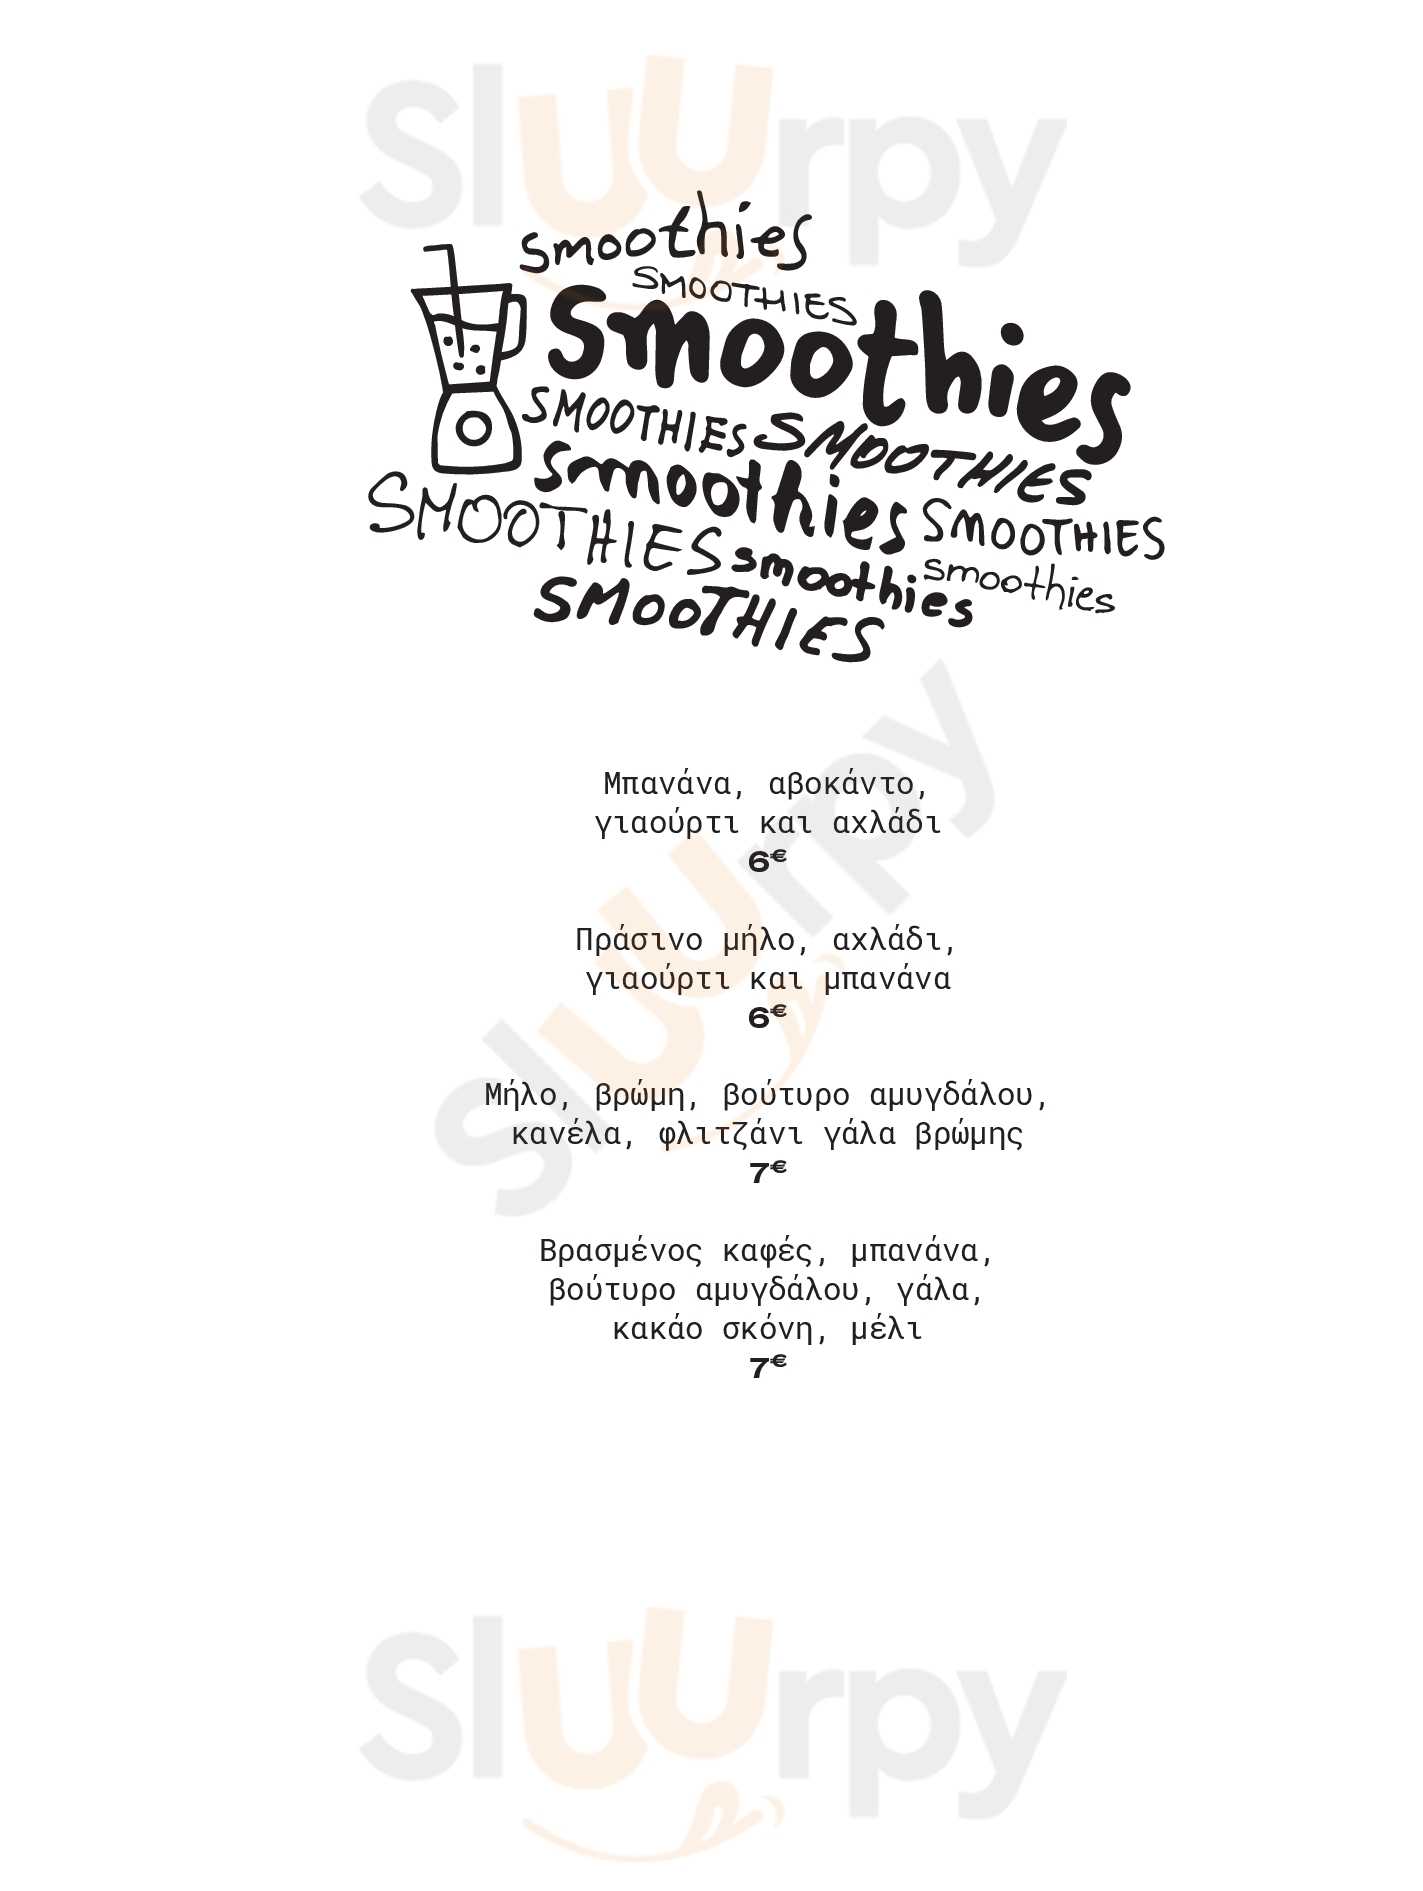 Sluurpy
smoothies
SMOOTHIES
smoothies
SMOOTHIES SMOOTHIES
smoothies SMOOTHIES
SMOOTHIES smoothies smoothies
SMOOTHIES
Μπανάνα, αβοκάντο,
γιαούρτι και αχλάδι
6€
Πράσινο μήλο, αχλάδι,
γιαούρτι και μπανάνα
6€
Sluurpy
Μήλο, βρώμη, βούτυρο αμυγδάλου,
κανέλα, φλιτζάνι γάλα βρώμης
7€
Βρασμένος καφές, μπανάνα,
βούτυρο αμυγδάλου, γάλα,
κακάο σκόνη, μέλι
7€
Sluurpy